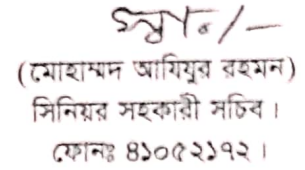 স্বা./-
(মোহাম্মদ আযিযুর রহমান)
সিনিয়র সহকারী সচিব।
ফোনঃ ৪১০৫২১৭২।